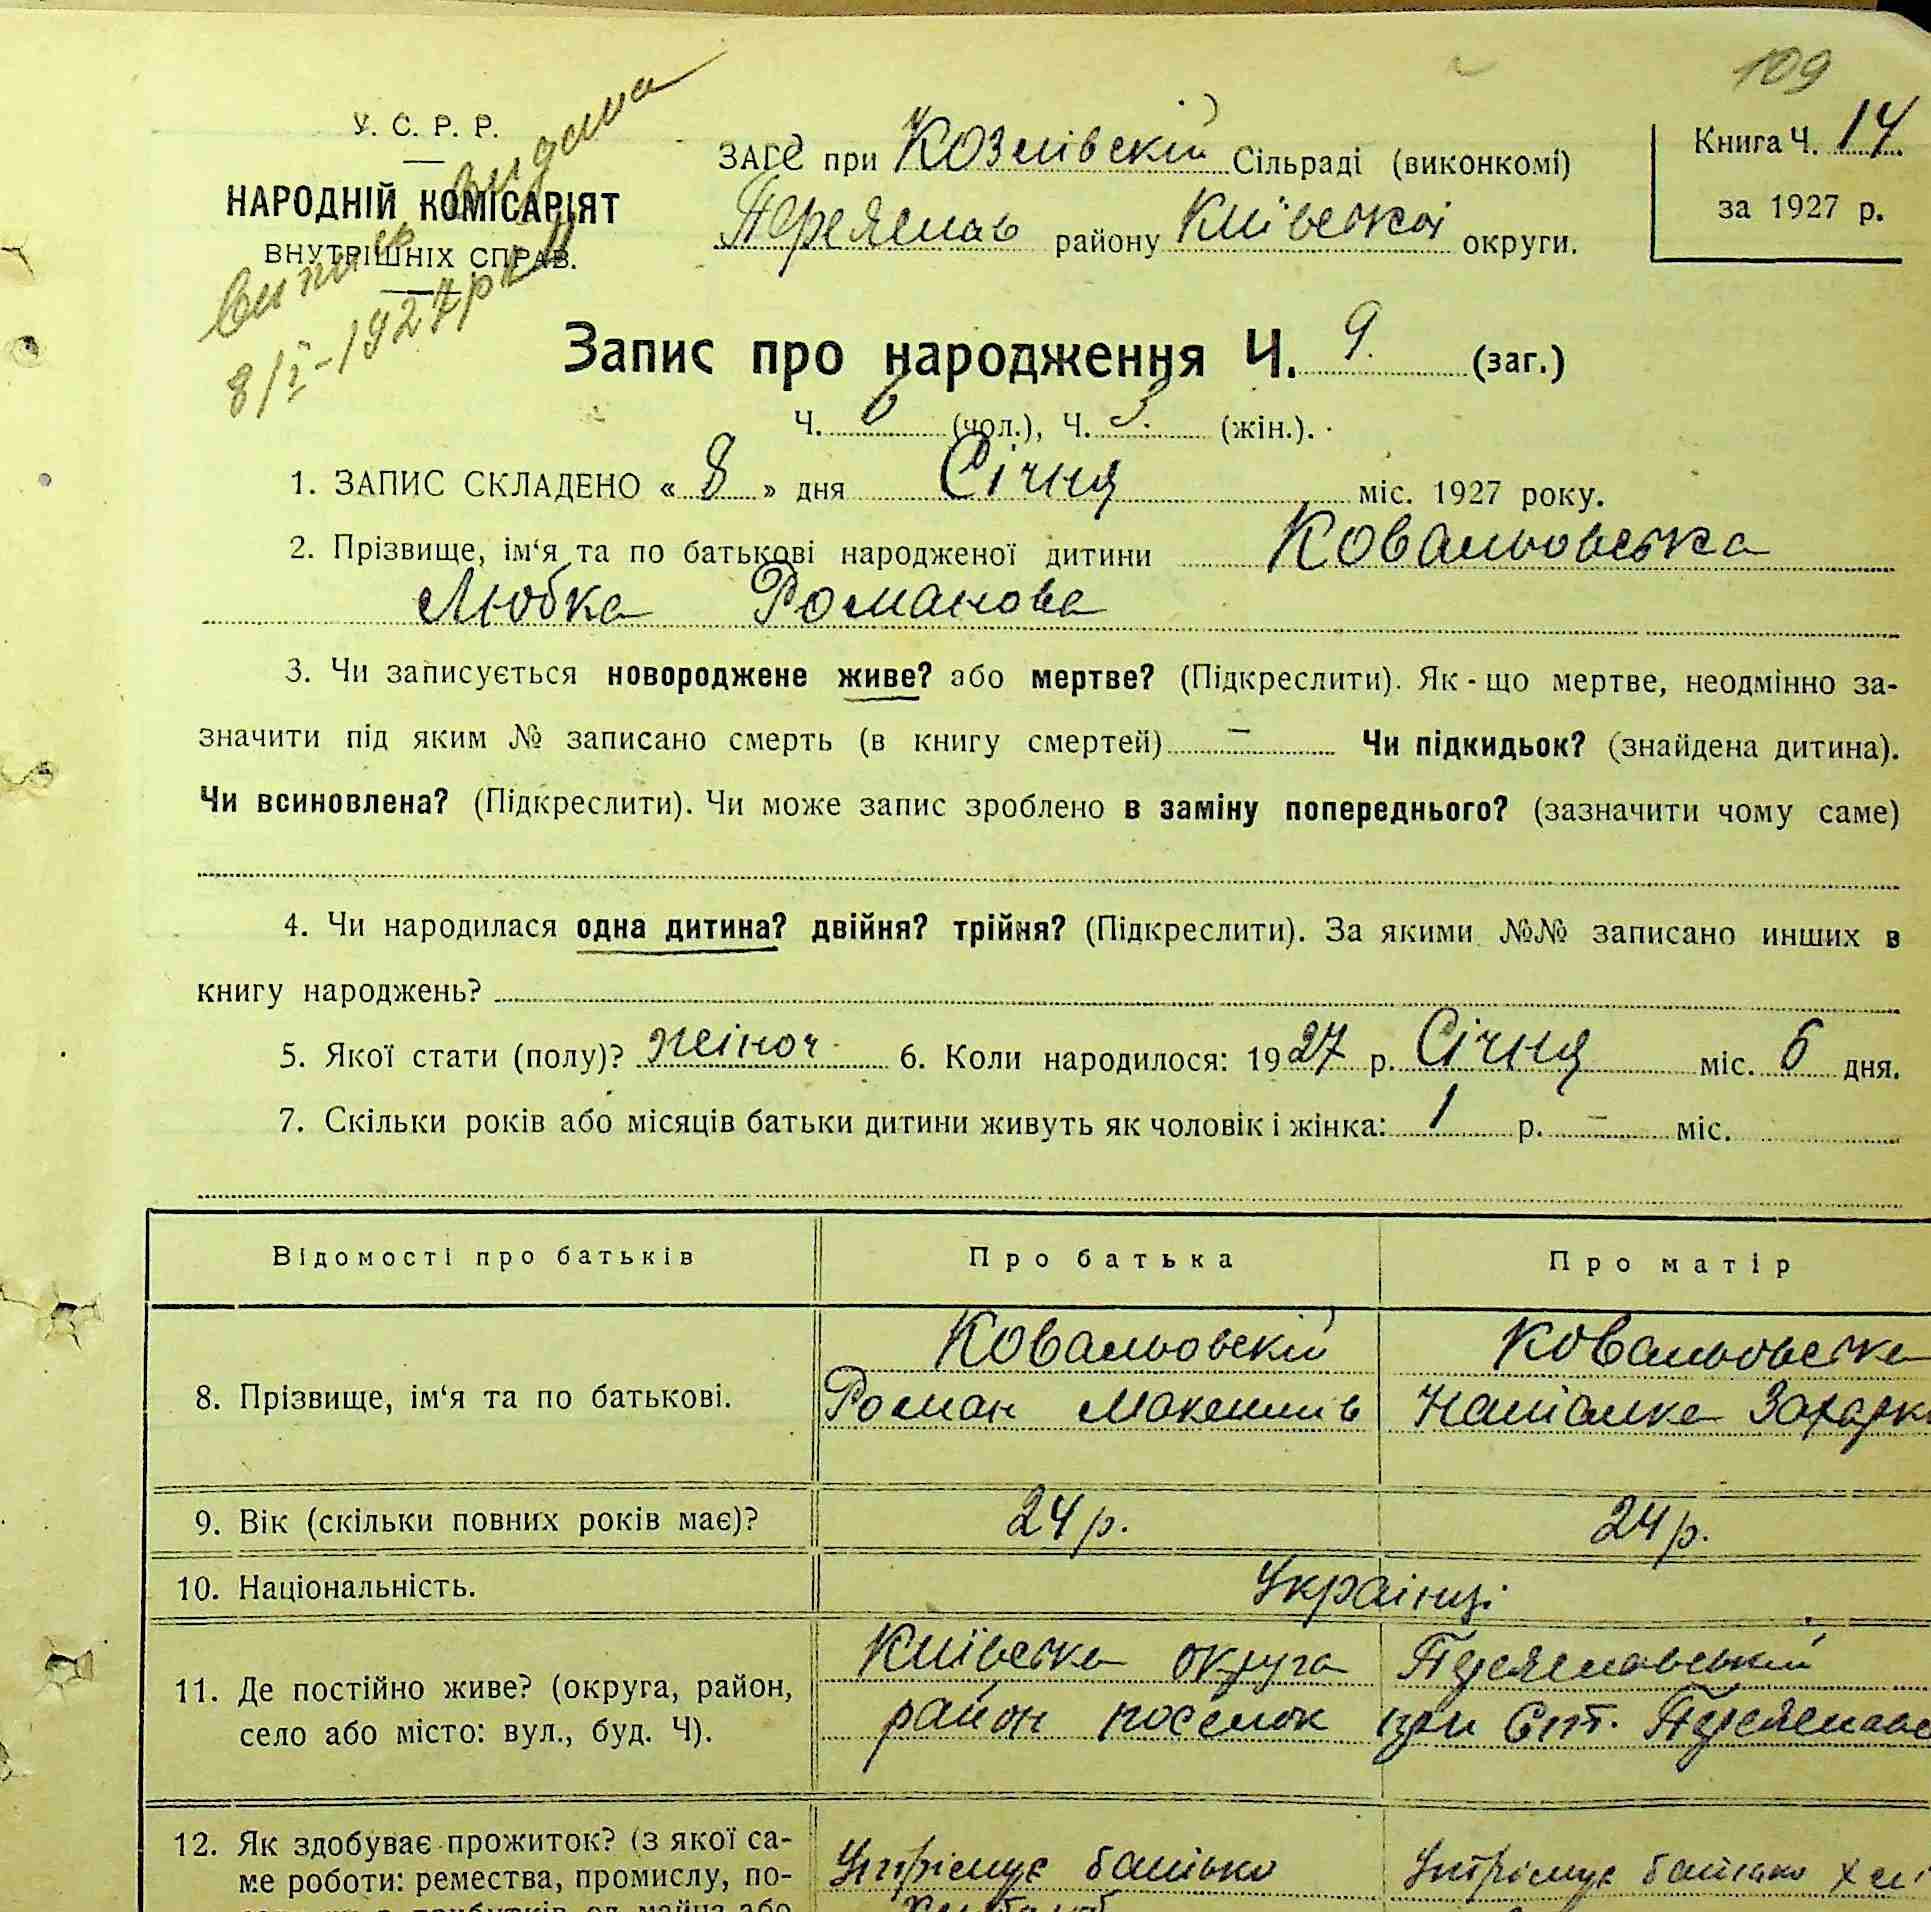 109
У. С. Р. Р.
НАРОДНІЙ КОМІСАРІЯТ
ВНУТРІШНІХ СПРАВ.
Випись видана
8/I-1927 року
ЗАГС при Козлівскій Сільраді (виконкомі)
Переяслав району Київської округи.
Книга Ч. 14
за 1927 р.
Запис про народження Ч. 9. (заг.)
Ч. 6 (чол.), Ч. 3. (жін.).
1. ЗАПИС СКЛАДЕНО « 8 » дня Січня міс. 1927 року.
2. Прізвище, ім‘я та по батькові народженої дитини Ковальовська
Любка Романова
3. Чи записується новороджене живе? або мертве? (Підкреслити). Як-що мертве, неодмінно за-
значити під яким № записано смерть (в книгу смертей) — Чи підкидьок? (знайдена дитина).
Чи всиновлена? (Підкреслити). Чи може запис зроблено в заміну попереднього? (зазначити чому саме)
4. Чи народилася одна дитина? двійня? трійня? (Підкреслити). За якими №№ записано инших в
книгу народжень?
5. Якої стати (полу)? жіноч 6. Коли народилося: 1927 р. Січня міс. 6 дня.
7. Скільки років або місяців батьки дитини живуть як чоловік і жінка: 1 р. — міс.
Відомості про батьків Про батька Про матір
Ковальовскій Ковальовська
8. Прізвище, ім‘я та по батькові. Роман Максимів Наталка
9. Вік (скільки повних років має)? 24 р. 24 р.
10. Національність. Українці
Київська округа Переяславський
11. Де постійно живе? (округа, район,
район посьолок при Ст.
село або місто: вул., буд. Ч).
12. Як здобуває прожиток? (з якої са-
Утрімує батько Утрімує батько
ме роботи: ремества, промислу, по-